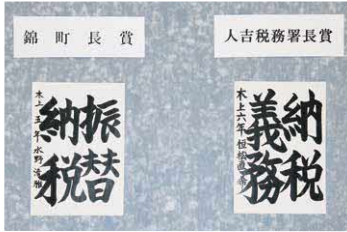 錦町長賞
人吉税務署長賞
振替
納税
木上五年水野
納税
義務
木上六年